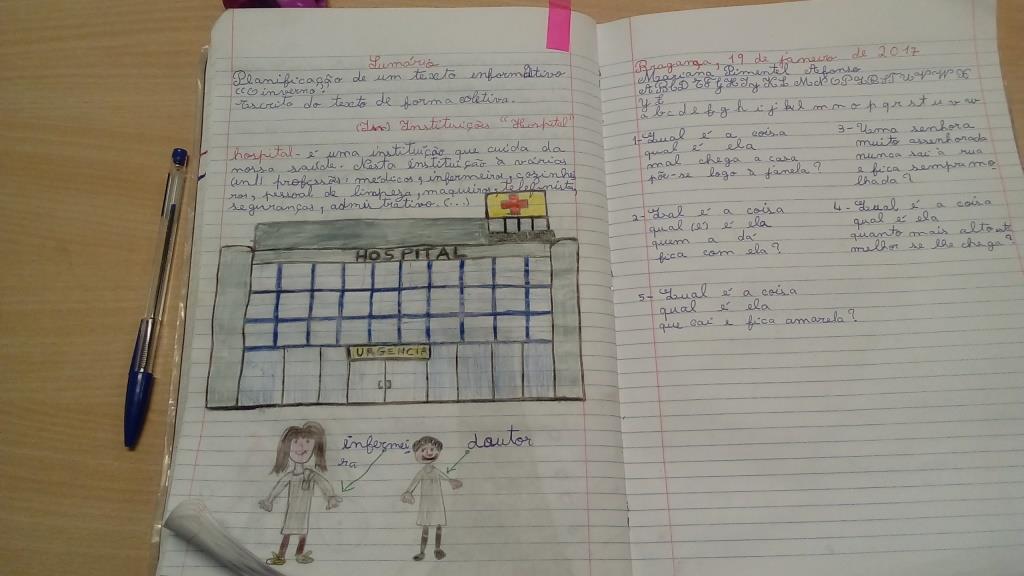 Sumário
Planificação de um texto informativo
"O inverno"
Escrita do texto de forma coletiva.
Instituições "Hospital"
hospital - é uma instituição que cuida da
nossa saúde. Nesta instituição à várias
profissão: médicos, enfermeiros, cozinhe
ros, pessoal de limpesa, maqueiros, telefenista,
seguranças, admistrativo. (...)
HOSPITAL
URGENCIA
infermei
ra
doutor
Bragança, 19 de janeiro de 2017
Pimentel Afonso
A B C D E F G H I J K L M N O P Q R S T U V W X
Y Z
a b c d e f g h i j k l m n o p q r s t u v w
1- Qual é a coisa
qual é ela
mal chega a casa
põe-se logo à janela?
2- Qal é a coisa
qual (e) é ela
quem a dá
fica com ela?
3- Uma senhora
muito assenhorada
nunca sai à rua
e fica sempra mo
lhada?
4- Qual é a coisa
qual é ela
quanto mais alto está
melhor se lhe chega?
5- Qual é a coisa
qual é ela
que cai e fica amarela?